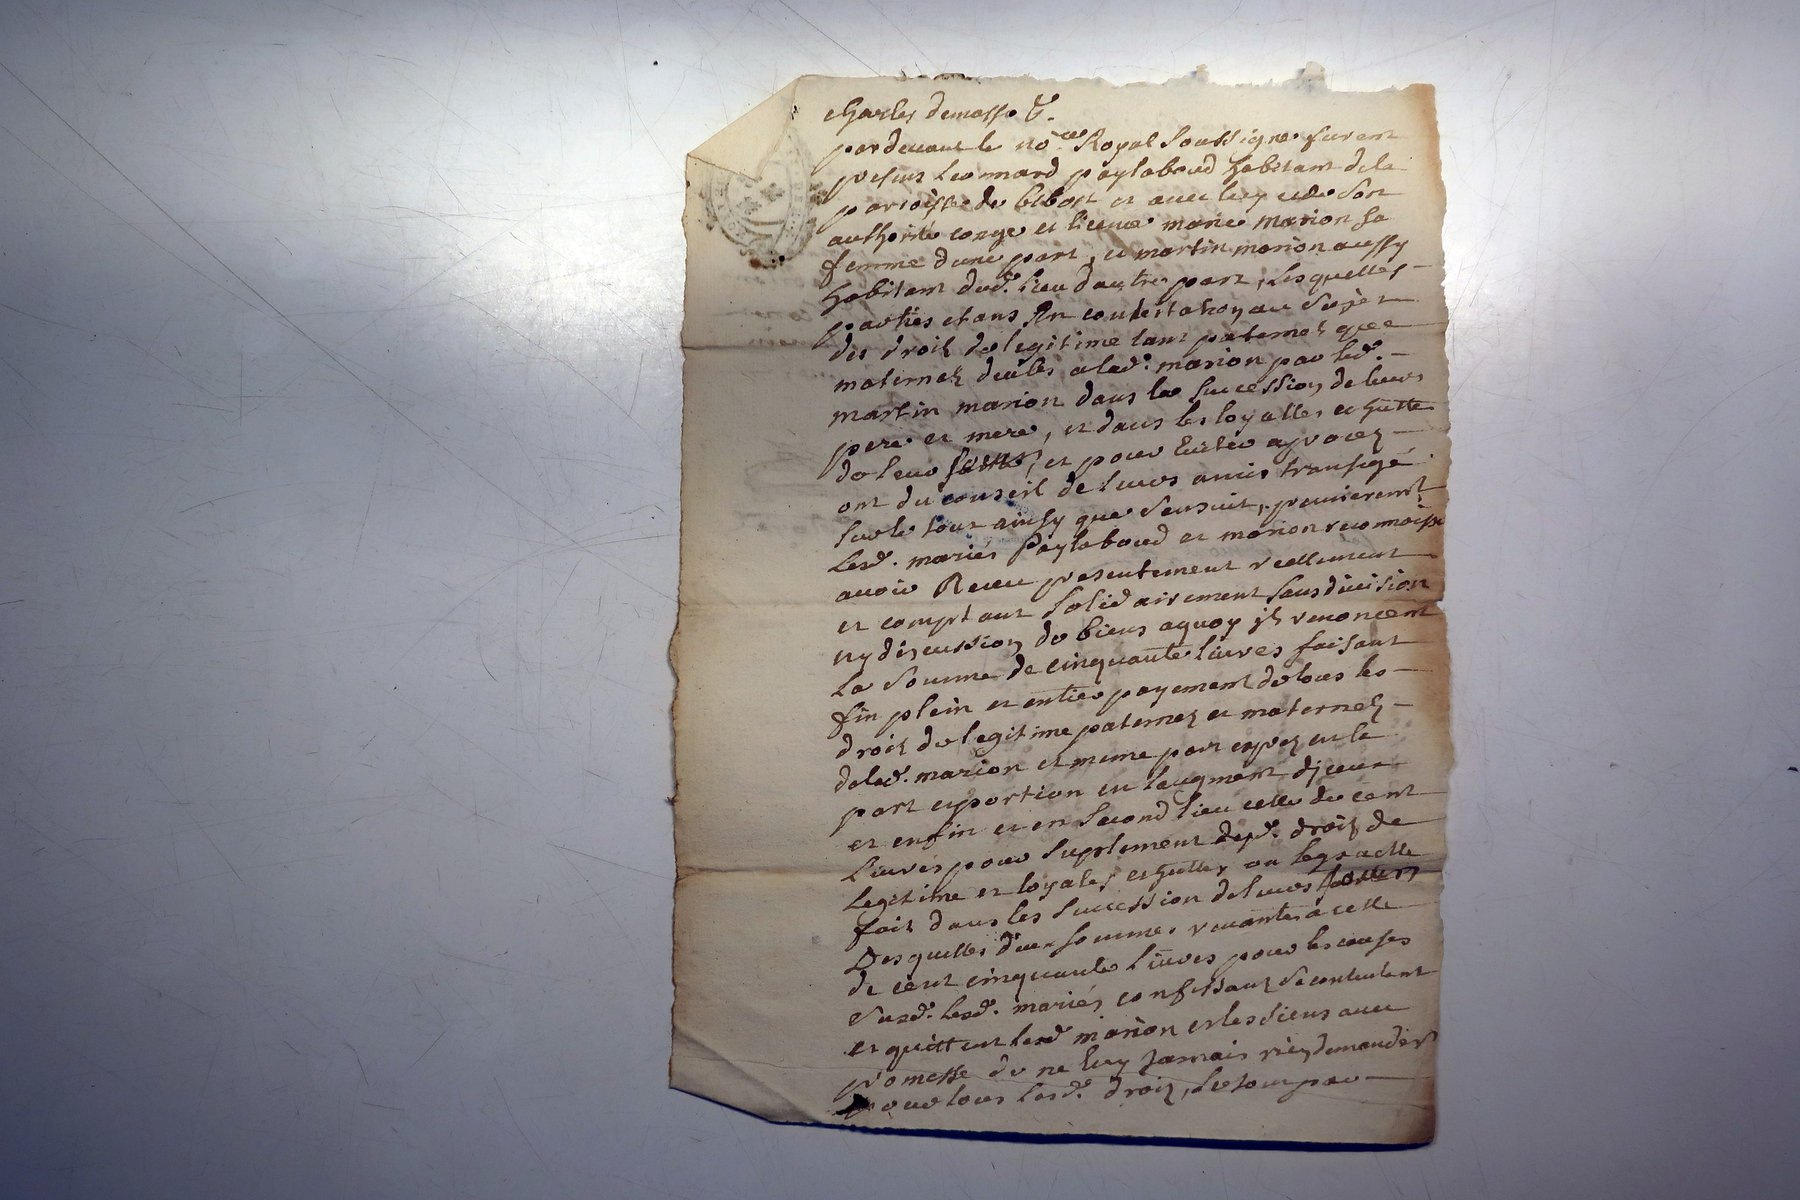 charles demasso
pardevant le no.re Royal Soussigné furent
presens Leonnard peylaboud habitant dela
parroisse de et avec luy et de son
authorité conge et licence marie marion sa
femme dune part, et martin marion aussy
habitant dud. lieu dautre part, lesquelles
parties etans En contestation au Sujet
des droitz de legitime tant paternelz que
maternelz deubs a lad. marion par led.
martin marion dans la succession de leurs
pere et mere, et dans les loyalles echuttes
de leur et pour Eviter a procez
ont du conseil de leurs amis transigé
sur le tout ainsy que sensuit, premieremt
Lesd. mariés Peylaboud et marion reconnoisse
avoir Receu presentement reellement
et comptant solidairement sans division
ny discussion de biens aquoy ils renoncent
La somme de cinquante livres faisant
fin plein et entier payement de tous les
droitz de legitime paternelz et maternelz
delad. marion et meme part et la
part et portion en laugment
et enfin et en second lieu celle de cent
Livres pour suplement desd. droitz de
Legitime et loyales echuttes ou legz a elle
faitz dans les succession de leurs
Desquelles deux sommes revenantes a celle
de cent cinquante livres pour les causes
susd. lesd. mariés confessant se contentent
et quittent led marion et les siens avec
promesse de ne luy Jamais rien demander
pour tous lesd. droitz, le tout par